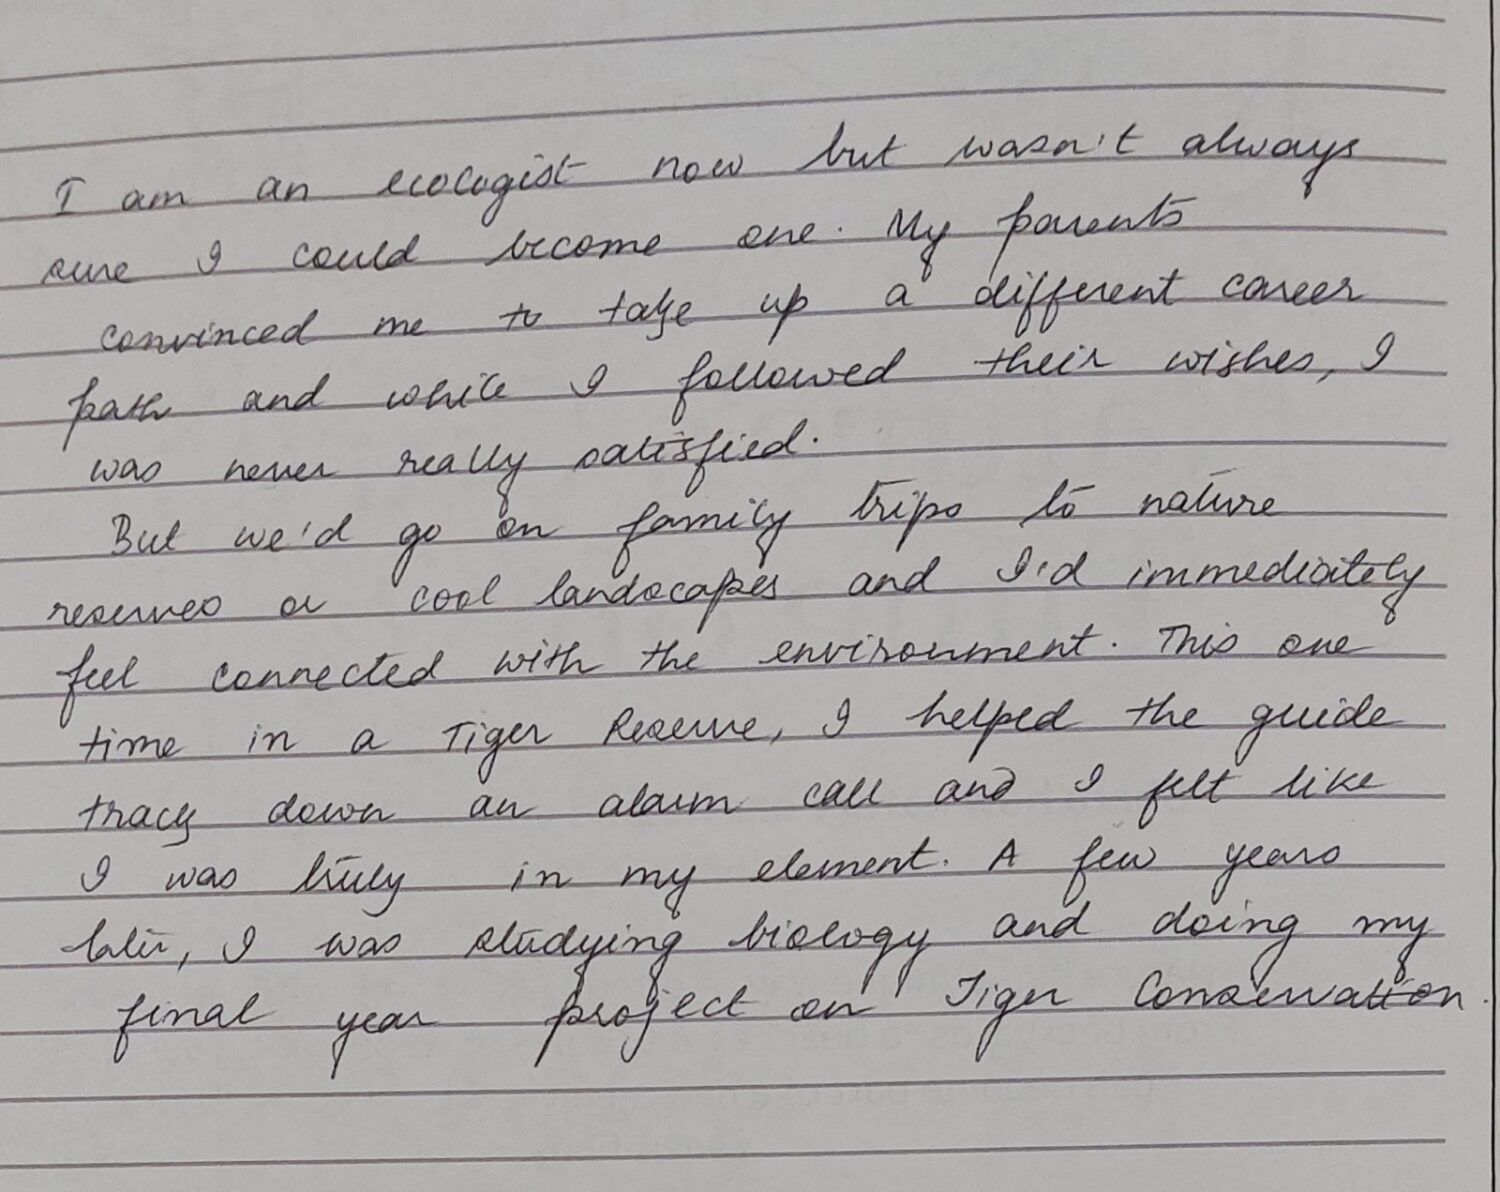 I am an ecologist now but wasn't always
sure I could become one. My parents
convinced me to take up a different career
path and while I followed their wishes, I
was never really satisfied.
But we'd go on family trips to nature
reserves or cool landscapes and I'd immediately
feel connected with the environment. This one
time in a Tiger Reserve, I helped the guide
track down an alarm call and I felt like
I was truly in my element. A few years
later, I was studying biology and doing my
final year project on Tiger Conservation.